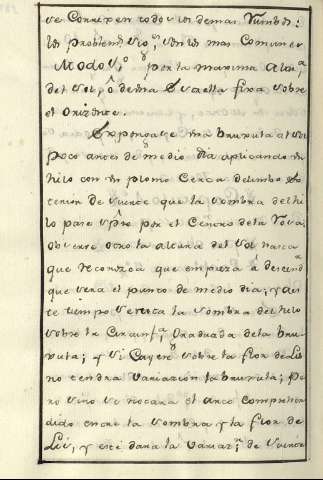 se corrigen todos los demas Rumbos:
los problem.s
los mas comunes
Modo 1.º por la maxima Altu.ª
del Sol, ô de una Estrella fixa sobre
el Orizonte.
Expongase una bruxula al Sol
poco antes de medio dia aplicando un
hilo con un plomo cerca del
de suerte que la sombra del hi
lo pase por el Centro de la Rosa,
obserbe la altura del Sol hasta
que reconozca que empieza â descend
que sera el punto de medio dia, y a es
te tiempo la sombra del hilo
sobre la Circunf.ª Graduada de la bru
xula; y si Cayere sobre la flor de Lis
no tendra Variacion la bruxula; Pe
ro sino se notara el arco comprehen
dido entre la sombra y la flor de
Lis, y este dara la Variaz.n de suerte